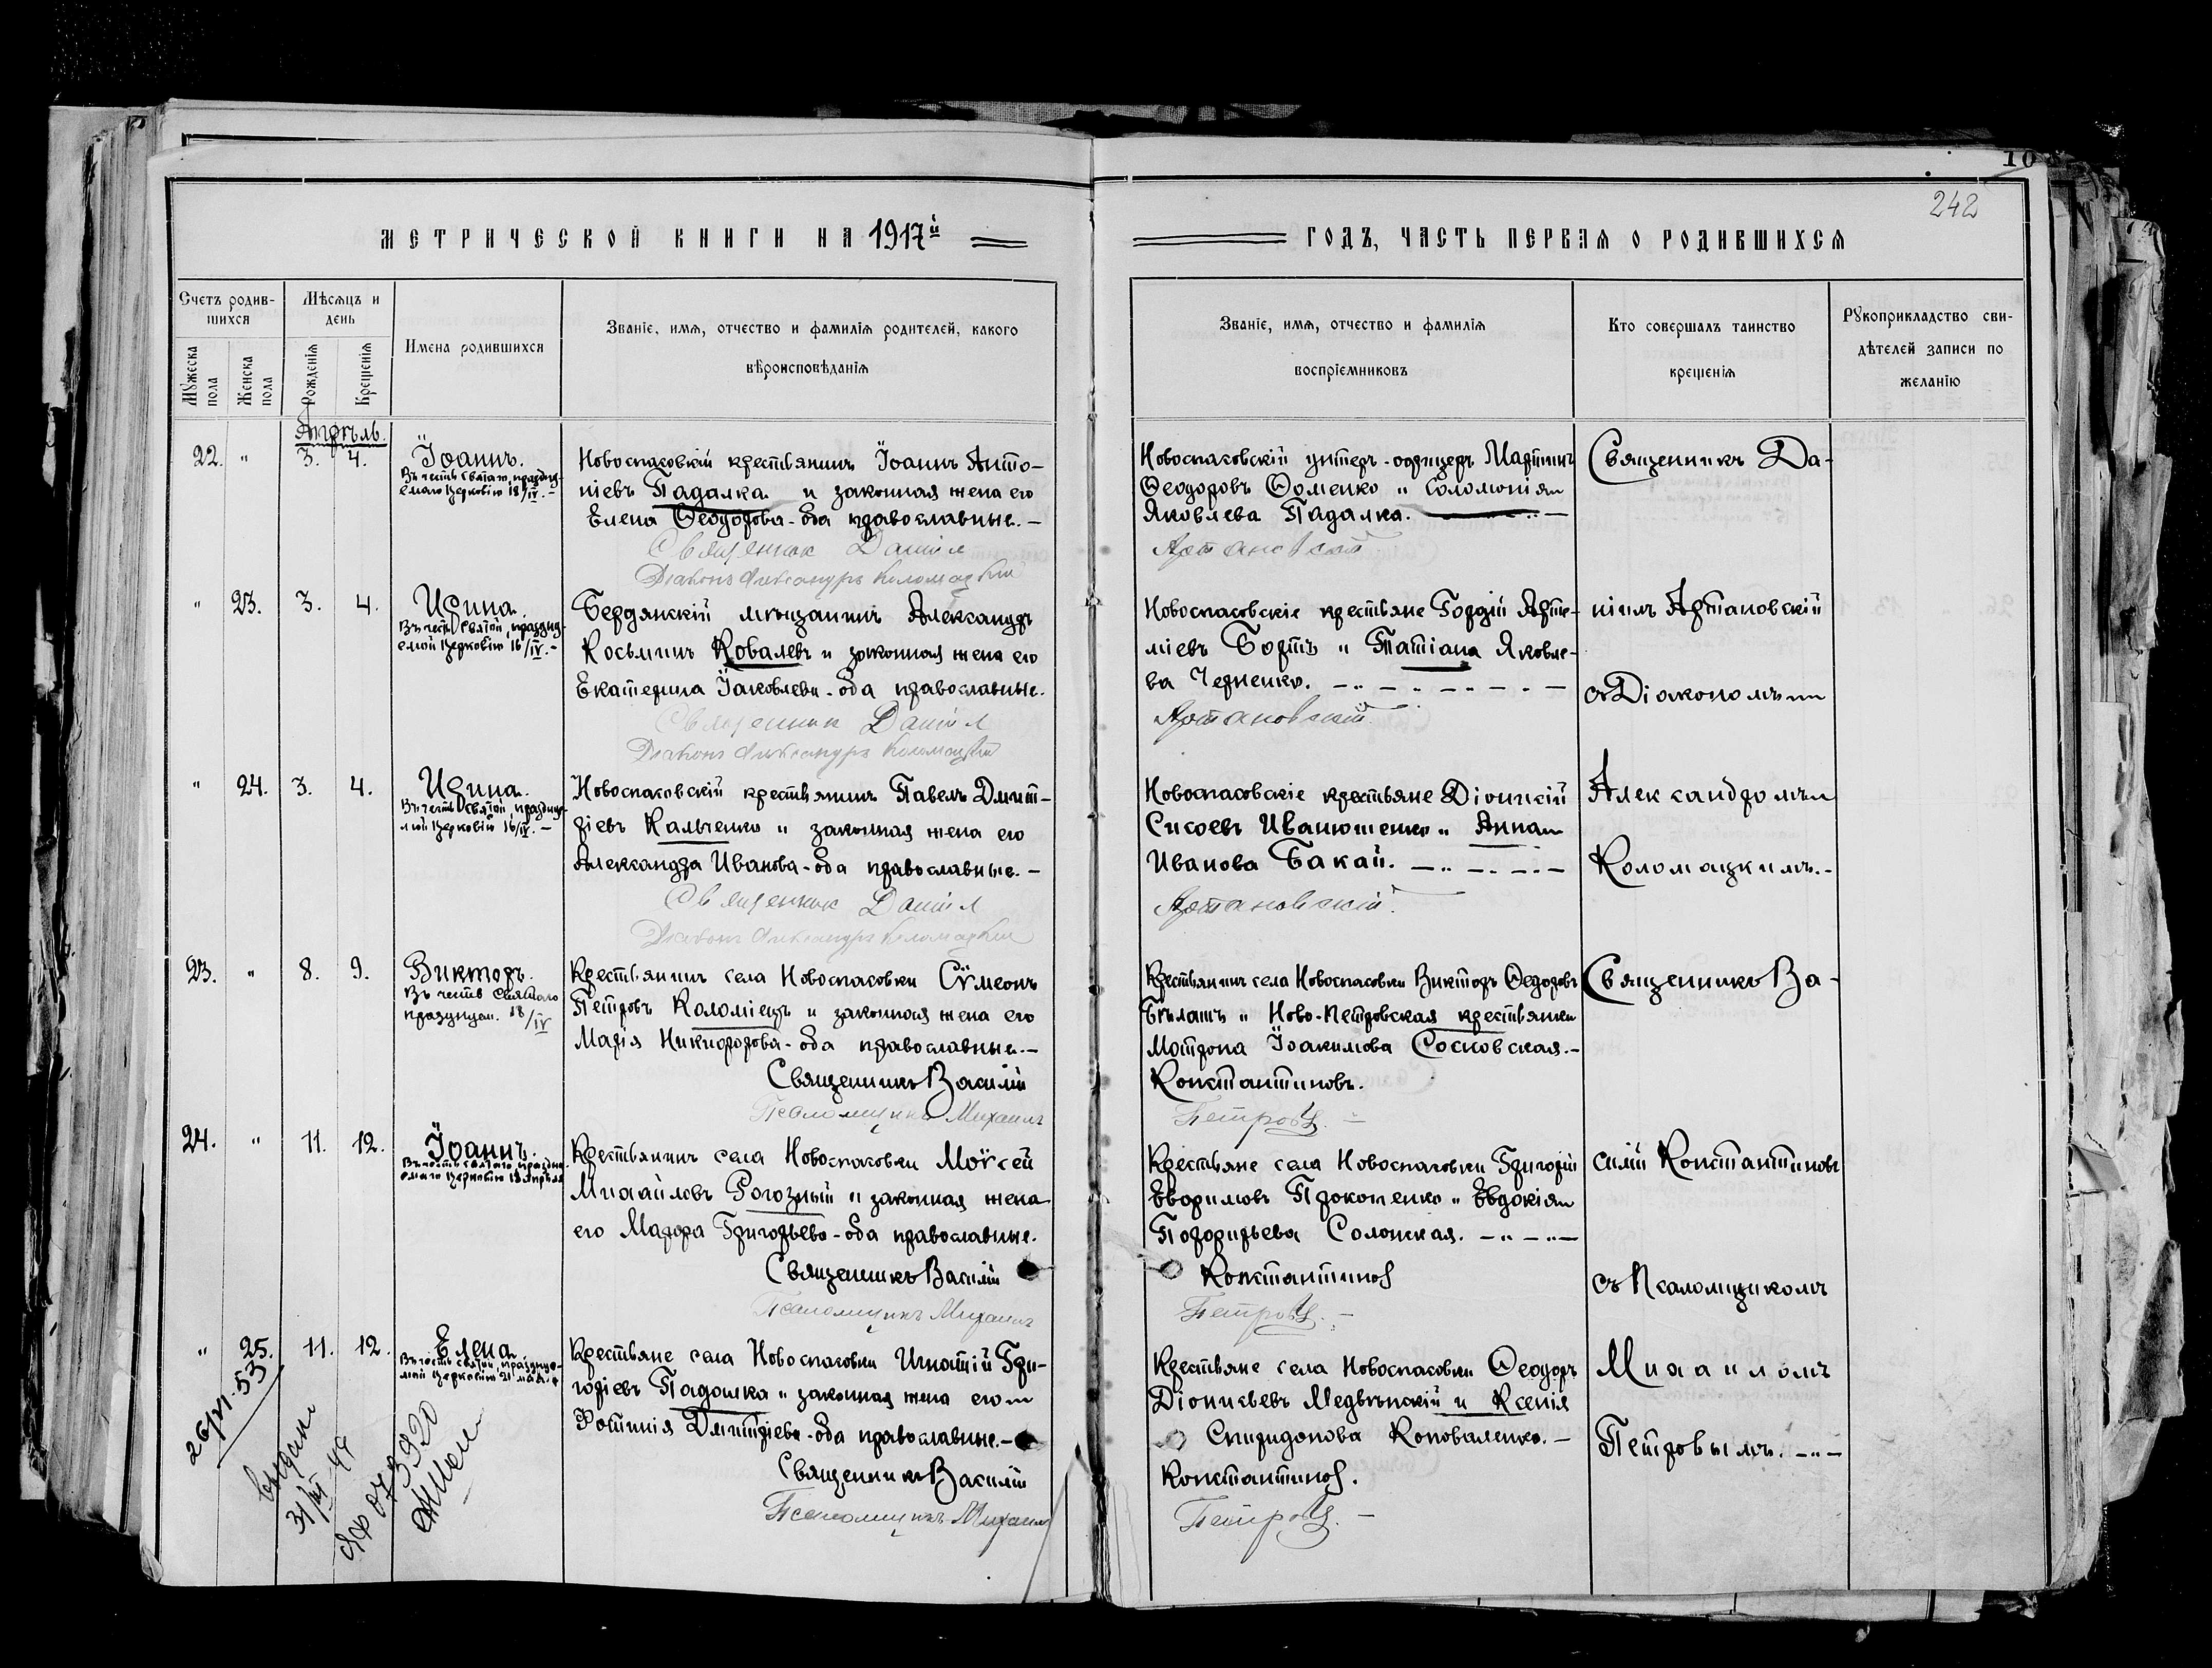 10
242
МЕТРИЧЕСКОЙ КНИГИ НА 1917й
ГОДЪ, ЧАСТЬ ПЕРВАЯ О РОДИВШИХСЯ
Счетъ родив-
шихся
Мѣсяцъ и
день
Мужеска
пола
Женска
пола
Рожденія
Крещенія
Имена родившихся
Званіе, имя, отчество и фамилія родителей, какого
вѣроисповѣданія
Званіе, имя, отчество и фамилія
воспріемниковъ
Кто совершалъ таинство
крещенія
Рукоприкладство сви-
дѣтелей записи по
желанію
Апрѣль.
22. " 3. 4.
Іоаннъ.
Въ честь святаго, праздну-
емаго Церковію 18/IV. -
Новоспасовскій крестьянинъ Іоаннъ Анто-
ніевъ Падалка и законная жена его
Елена Ѳеодорова - оба православные. -
Священник Даніил
Діаконъ Александръ Коломацкій
Новоспасовскій унтеръ-офицеръ Мартинъ
Ѳеодоровъ Ѳоменко и Соломонія
Яковлева Падалка.
Артановскій
Священникъ Да-
" 23. 3. 4.
Ирина.
Въ честь святой, праздну-
емой Церковію 16/IV. -
Бердянскій мѣщанинъ Александръ
Косьминъ Ковалевъ и законная жена его
Екатерина Іаковлева - оба православные.
Священник Даніил
Діаконъ Александръ Коломацкій
Новоспасовскіе крестьяне Гордій Арте-
міевъ Бортъ и Татіана Яковле-
ва Черненко.
Артановскій
ніилъ Артановскій
съ Діакономъ
" 24. 3. 4.
Ирина.
Въ честь святой, праздну-
мой Церковію 16/IV. -
Новоспасовскій крестьянинъ Павелъ Димит-
ріевъ Кальченко и законная жена его
Александра Иванова - оба православные. -
Священник Даніил
Діаконъ Александръ Коломацкій
Новоспасовскіе крестьяне Діонисій
Сисоевъ Иванющенко и Анна
Иванова Бакай.
Артановскій
Александромъ
Коломацкимъ. -
23. " 8. 9.
Викторъ.
Въ честь святаго
празднуем. 18/IV
Крестьянинъ села Новоспасовки Сѵмеонъ
Петровъ Коломіецъ и законная жена его
Марія Никифорова - оба православные. -
Священникъ Василій
Псаломщикъ Михаилъ
Крестьянинъ села Новоспасовки Викторъ Ѳедоровъ
Бѣлашъ и Ново-Петровская крестьянка
Мотрона Іоакимова Сосновская. -
Константиновъ.
Петровъ. -
Священникъ Ва-
24. " 11. 12.
Іоаннъ.
Въ честь святаго, праздну-
емаго Церковію 18 Апрѣля
Крестьянинъ села Новоспасовки Моѵсей
Михайловъ Рогозный и законная жена
его Марфа Григорьева - оба православные.
Священникъ Василій
Псаломщикъ Михаилъ
Крестьяне села Новоспасовки Григорій
Ефримовъ Прокопенко и Евдокія
Порфирьева Солонская.
Константинов
Петровъ. -
силій Константиновъ
съ Псаломщикомъ
" 25. 11. 12.
Елена.
Въ честь святой, праздну-
мой Церковію 21 мая
Крестьяне села Новоспасовки Игнатій Гри-
горіевъ Падалка и законная жена его
Фотинія Димитріева - оба православные. -
Священникъ Василій
Псаломщикъ Михаилъ
Крестьяне села Новоспасовки Ѳеодоръ
Діонисьевъ Медвѣнскій и Ксенія
Спиридонова Коноваленко. -
Константинов.
Петровъ. -
Михаиломъ
Петровымъ.
выдано